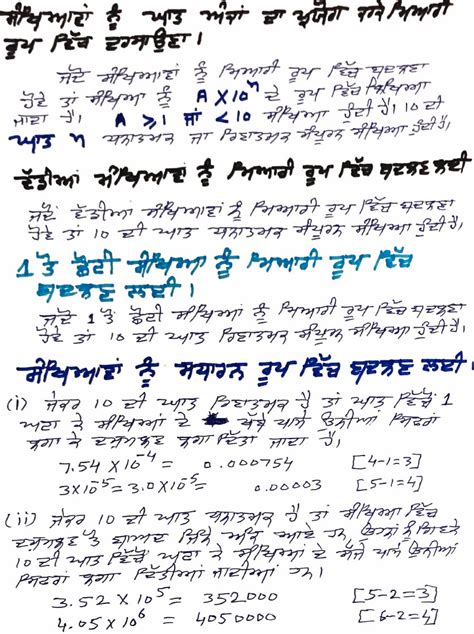 ਸੰਖਿਆਵਾਂ ਨੂੰ ਘਾਤ ਅੰਕਾਂ ਦਾ ਪ੍ਰਯੋਗ ਕਰਕੇ ਮਿਆਰੀ
ਰੂਪ ਵਿੱਚ ਦਰਸਾਉਣਾ।
ਜਦੋਂ ਸੰਖਿਆਵਾਂ ਨੂੰ ਮਿਆਰੀ ਰੂਪ ਵਿੱਚ ਬਦਲਣਾ
ਹੋਵੇ ਤਾਂ ਸੰਖਿਆ ਨੂੰ A×10ⁿ ਦੇ ਰੂਪ ਵਿੱਚ ਲਿਖਿਆ
ਜਾਂਦਾ ਹੈ। A ≥ 1 ਜਾਂ < 10 ਸੰਖਿਆ ਹੁੰਦੀ ਹੈ। 10 ਦੀ
ਘਾਤ n ਧਨਾਤਮਕ ਜਾਂ ਰਿਣਾਤਮਕ ਸੰਪੂਰਨ ਸੰਖਿਆ ਹੁੰਦੀ ਹੈ।
ਵੱਡੀਆਂ ਸੰਖਿਆਵਾਂ ਨੂੰ ਮਿਆਰੀ ਰੂਪ ਵਿੱਚ ਬਦਲਣ ਲਈ
ਜਦੋਂ ਵੱਡੀਆਂ ਸੰਖਿਆਵਾਂ ਨੂੰ ਮਿਆਰੀ ਰੂਪ ਵਿੱਚ ਬਦਲਣਾ
ਹੋਵੇ ਤਾਂ 10 ਦੀ ਘਾਤ ਧਨਾਤਮਕ ਸੰਪੂਰਨ ਸੰਖਿਆ ਹੁੰਦੀ ਹੈ।
1 ਤੋਂ ਛੋਟੀ ਸੰਖਿਆ ਨੂੰ ਮਿਆਰੀ ਰੂਪ ਵਿੱਚ
ਬਦਲਣ ਲਈ।
ਜਦੋਂ 1 ਤੋਂ ਛੋਟੀ ਸੰਖਿਆਵਾਂ ਨੂੰ ਮਿਆਰੀ ਰੂਪ ਵਿੱਚ ਬਦਲਣਾ
ਹੋਵੇ ਤਾਂ 10 ਦੀ ਘਾਤ ਰਿਣਾਤਮਕ ਸੰਪੂਰਨ ਸੰਖਿਆ ਹੁੰਦੀ ਹੈ।
ਸੰਖਿਆਵਾਂ ਨੂੰ ਸਧਾਰਨ ਰੂਪ ਵਿੱਚ ਬਦਲਣ ਲਈ।
(i) ਜੇਕਰ 10 ਦੀ ਘਾਤ ਰਿਣਾਤਮਕ ਹੈ ਤਾਂ ਘਾਤ ਵਿੱਚੋਂ 1
ਘਟਾ ਕੇ ਸੰਖਿਆ ਦੇ ਖੱਬੇ ਪਾਸੇ ਓਨੀਆਂ ਸਿਫਰਾਂ
ਲਗਾ ਕੇ ਦਸ਼ਮਲਵ ਲਗਾ ਦਿੱਤਾ ਜਾਂਦਾ ਹੈ।
7.54 × 10⁻⁴ = 0.000754 [4-1=3]
3×10⁻⁵ = 3.0×10⁻⁵ = 0.00003 [5-1=4]
(ii) ਜੇਕਰ 10 ਦੀ ਘਾਤ ਧਨਾਤਮਕ ਹੈ ਤਾਂ ਸੰਖਿਆ ਵਿੱਚ
ਦਸ਼ਮਲਵ ਤੋਂ ਬਾਅਦ ਜਿੰਨੇ ਅੰਕ ਆਏ ਹਨ, ਉਹਨਾਂ ਨੂੰ ਗਿਣਕੇ
10 ਦੀ ਘਾਤ ਵਿੱਚੋਂ ਘਟਾ ਕੇ ਸੰਖਿਆ ਦੇ ਸੱਜੇ ਪਾਸੇ ਓਨੀਆਂ
ਸਿਫਰਾਂ ਲਗਾ ਦਿੱਤੀਆਂ ਜਾਂਦੀਆਂ ਹਨ।
3.52 × 10⁵ = 352000 [5-2=3]
4.05 × 10⁶ = 4050000 [6-2=4]